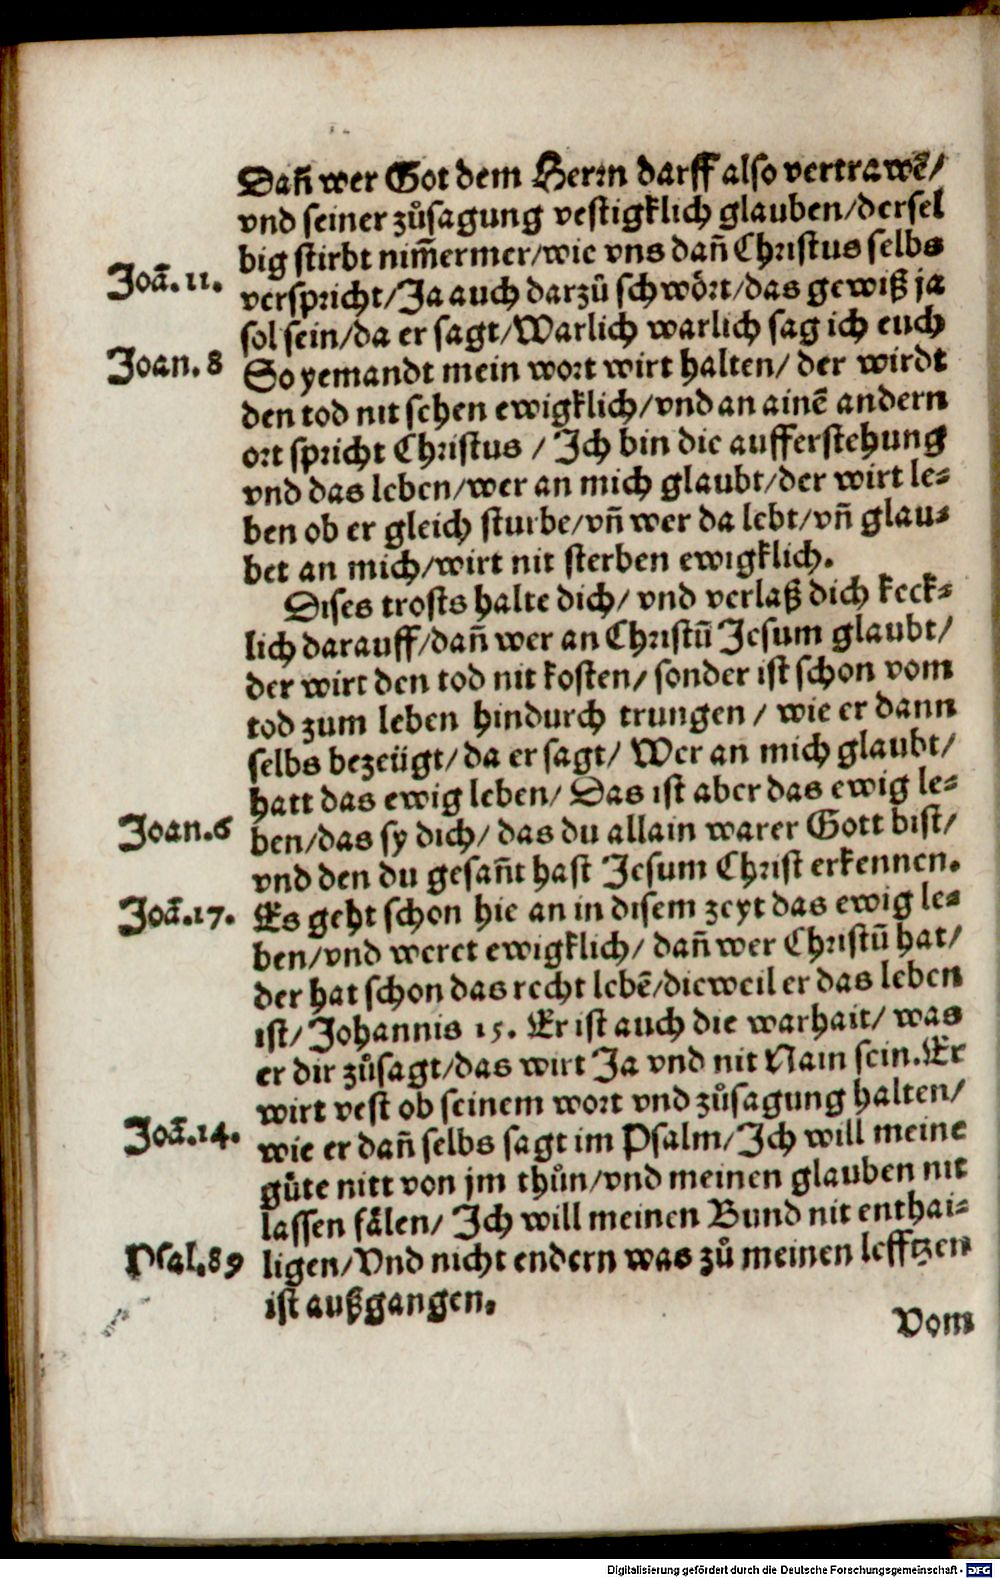 Dañ wer Got dem Herrn darff also vertrawẽ/
vnd seiner zůsagung vestigklich glauben/dersel
big stirbt nim̃ermer/wie vns dañ Christus selbs
Joã. 11.
verspricht/Ja auch darzů schwört/das gewiß ja
sol sein/da er sagt/Warlich warlich sag ich euch
Joan. 8
So yemandt mein wort wirt halten/ der wirdt
den tod nit sehen ewigklich/vnd an ainẽ andern
ort spricht Christus / Ich bin die aufferstehung
vnd das leben/wer an mich glaubt/der wirt le⸗
ben ob er gleich sturbe/vñ wer da lebt/vñ glau⸗
bet an mich/wirt nit sterben ewigklich.
Dises trosts halte dich/ vnd verlaß dich keck⸗
lich darauff/dañ wer an Christũ Jesum glaubt/
der wirt den tod nit kosten/ sonder ist schon vom
tod zum leben hindurch trungen / wie er dann
selbs bezeügt/ da er sagt/ Wer an mich glaubt/
hatt das ewig leben/ Das ist aber das ewig le⸗
Joan.6
ben/das sy dich/ das du allain warer Gott bist/
vnd den du gesañt hast Jesum Christ erkennen.
Joã.17.
Es geht schon hie an in disem zeyt das ewig le⸗
ben/vnd weret ewigklich/ dañ wer Christũ hat/
der hat schon das recht lebẽ/dieweil er das leben
ist/ Johannis 15. Er ist auch die warhait/ was
er dir zůsagt/das wirt Ja vnd nit Nain sein.Er
wirt vest ob seinem wort vnd zůsagung halten/
Joã.14.
wie er dañ selbs sagt im Psalm/ Ich will meine
gůte nitt von jm thůn/vnd meinen glauben nit
lassen fälen/ Ich will meinen Bund nit enthai⸗
Psal.89
ligen/Vnd nicht endern was zů meinen lefftzen
ist außgangen.
Vom
Digitalisierung gefördert durch die Deutsche Forschungsgemeinschaft - DFG